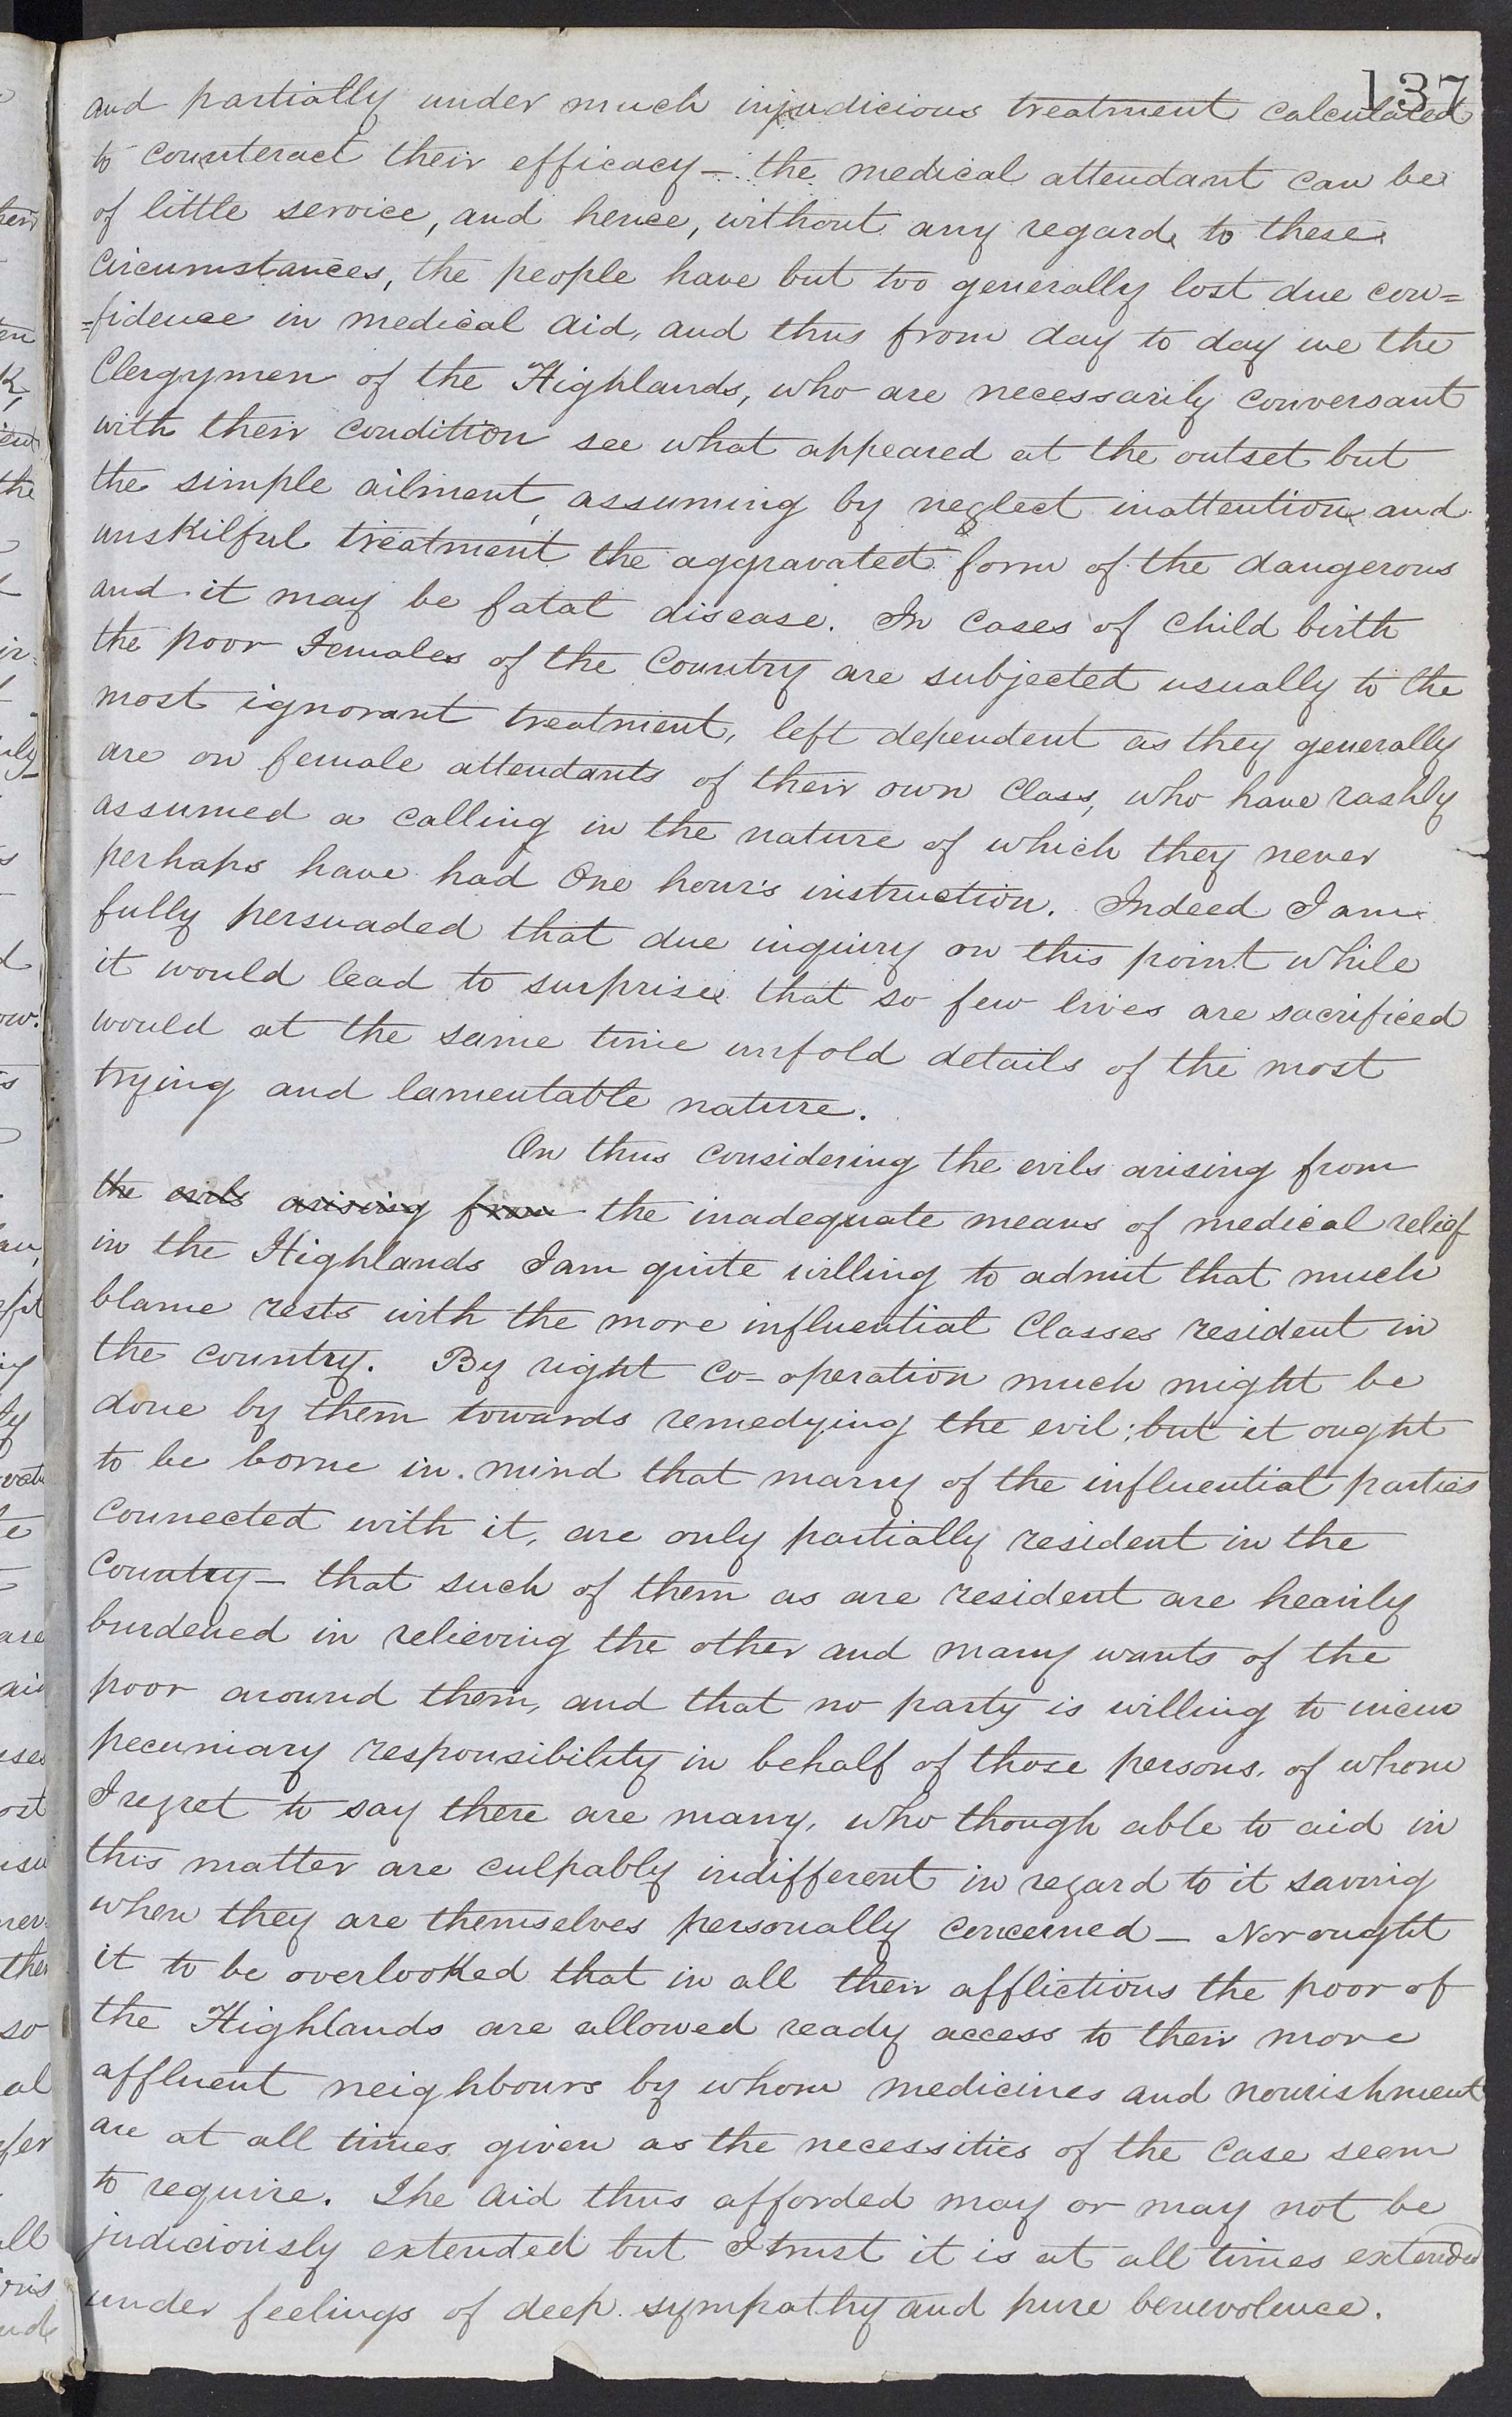 137
and partially under much injudicious treatment calculated
to counteract their efficacy — the medical attendant can be
of little service, and hence, without any regard to these
circumstances, the people have but too generally lost due con=
=fidence in medical aid, and thus from day to day we the
Clergymen of the Highlands, who are necessarily conversant
with their condition see what appeared at the outset but
the simple ailment, assuming by neglect inattention and
unskilful treatment the aggravated form of the dangerous
and it may be fatal disease. In cases of child birth
the poor Females of the Country are subjected usually to the
most ignorant treatment, left dependent as they generally
are on female attendants of their own Class, who have rashly
assumed a calling in the nature of which they never
perhaps have had One hour's instruction. Indeed I am
fully persuaded that due inquiry on this point while
it would lead to surprise that so few lives are sacrificed
would at the same time unfold details of the most
trying and lamentable nature.
On thus considering the evils arising from
the evils arising from the inadequate means of medical relief
in the Highlands I am quite willing to admit that much
blame rests with the more influential Classes resident in
the country. By right co-operation much might be
done by them towards remedying the evil; but it ought
to be borne in mind that many of the influential parties
connected with it, are only partially resident in the
Country — that such of them as are resident are heavily
burdened in relieving the other and many wants of the
poor around them, and that no party is willing to incur
pecuniary responsibility in behalf of those persons, of whom
I regret to say there are many, who though able to aid in
this matter are culpably indifferent in regard to it saving
when they are themselves personally concerned — Nor ought
it to be overlooked that in all their afflictions the poor of
the Highlands are allowed ready access to their more
affluent neighbours by whom medicines and nourishment
are at all times given as the necessities of the Case seem
to require. The aid thus afforded may or may not be
judiciously extended but I trust it is at all times extended
under feelings of deep sympathy and pure benevolence.